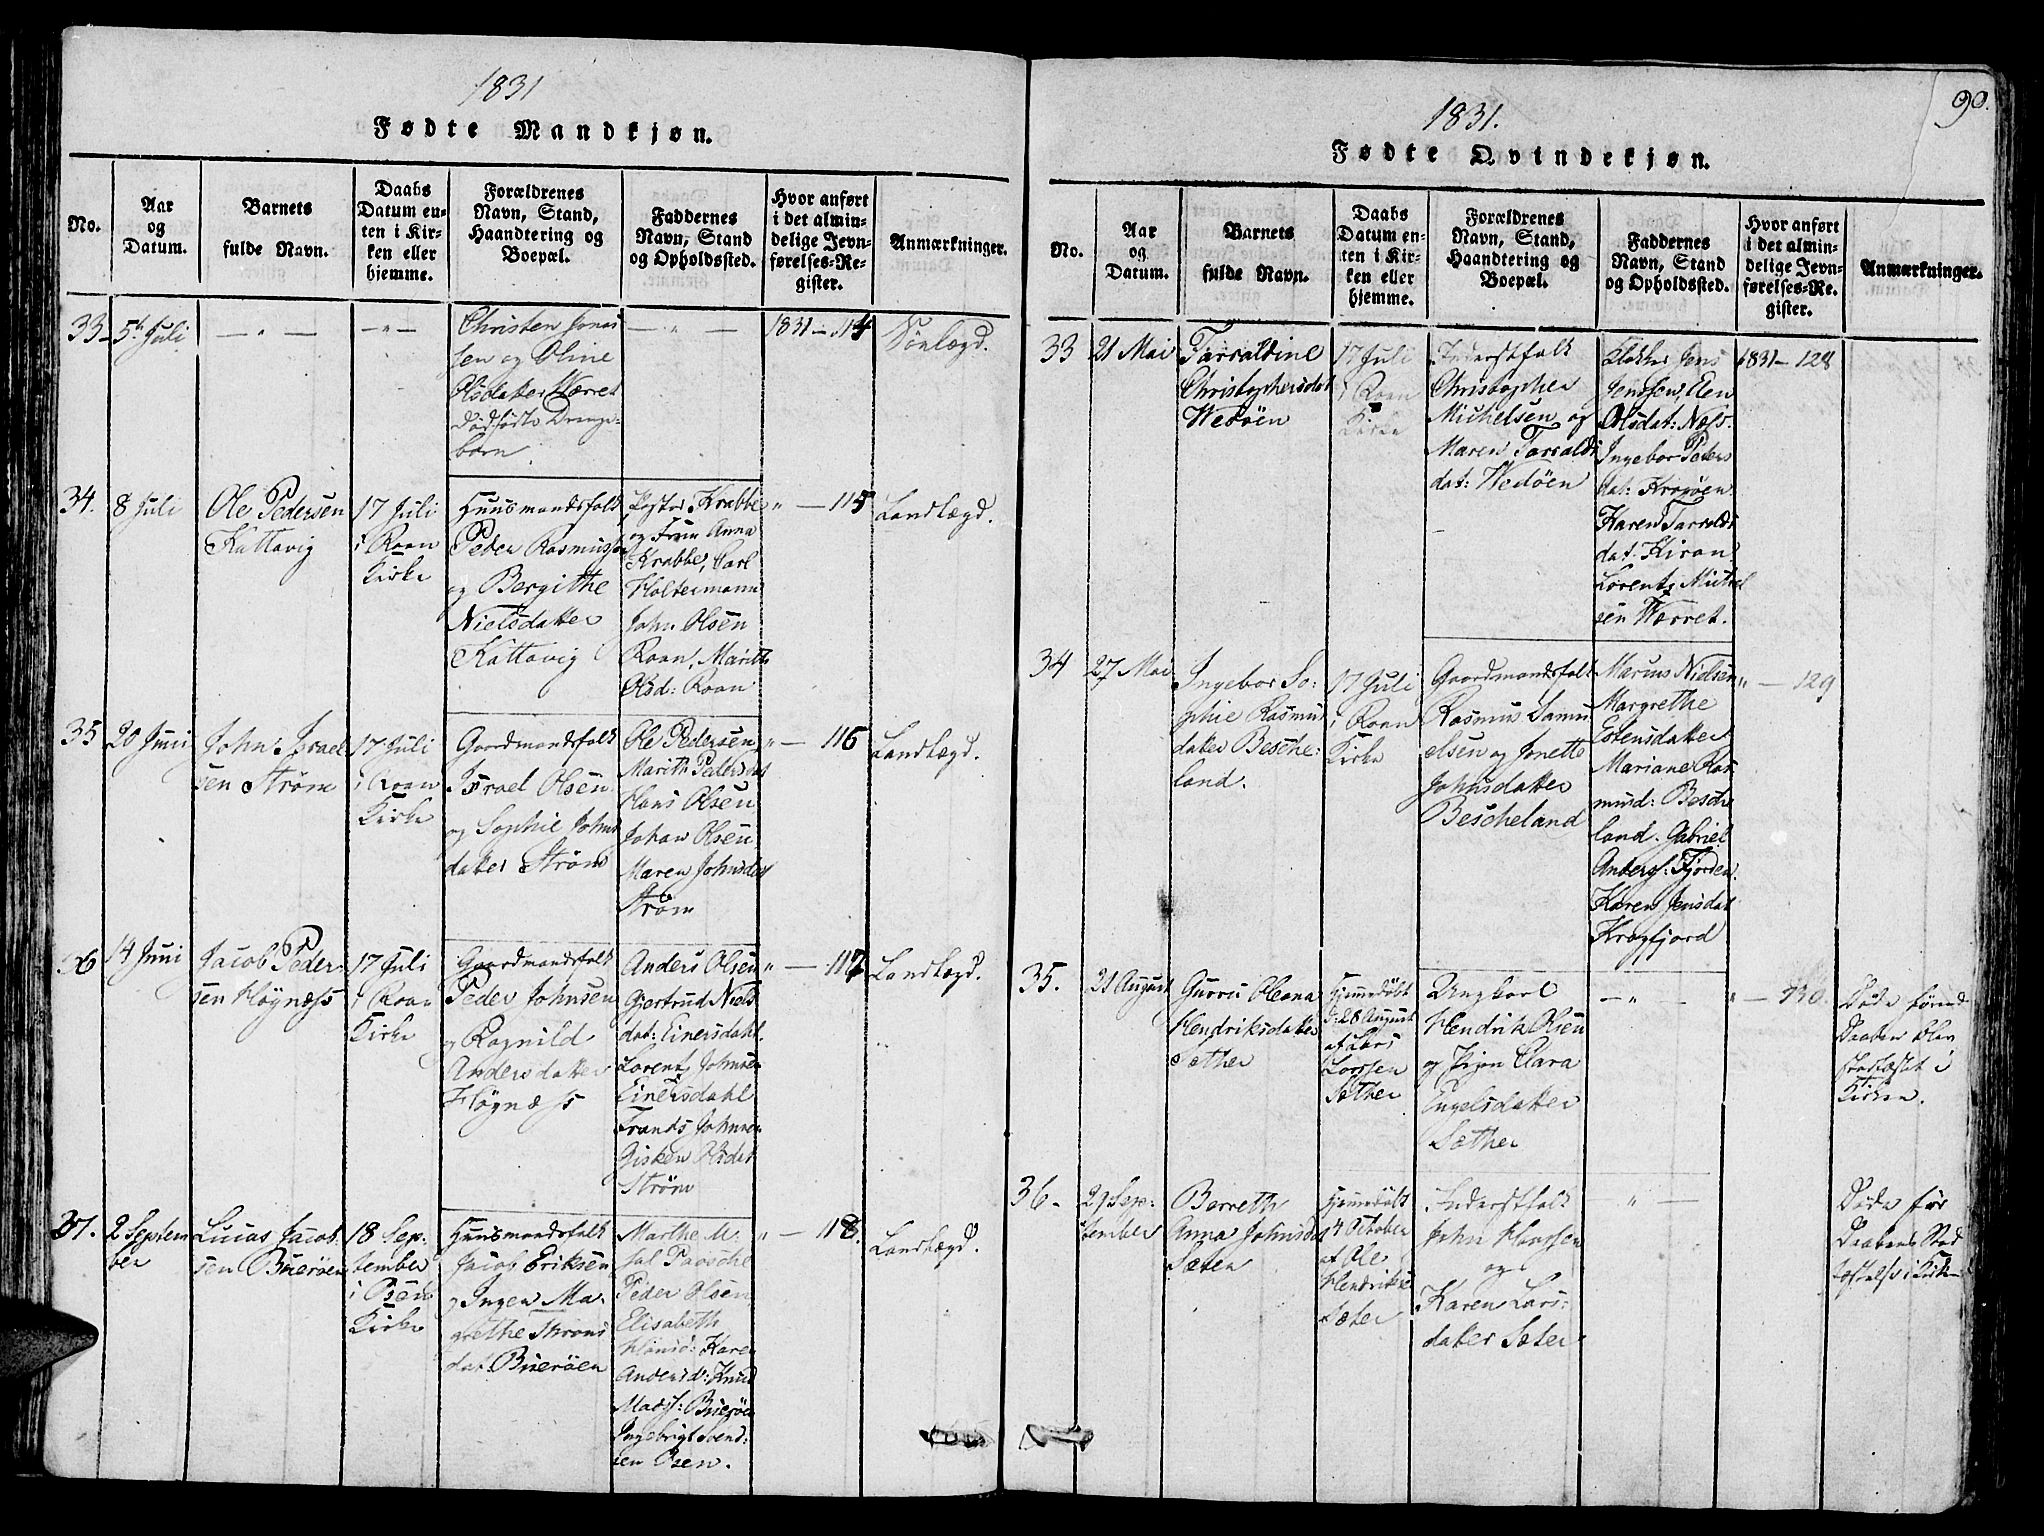 1831
Fødte Mandkjøn.
No.
Aar
og
Datum.
Barnets
fulde Navn.
Daabs
Datum en-
ten i Kir-
ken eller
hjemme.
Forældrenes
Navn, Stand,
Haandtering og
Boepæl.
Faddernes
Navn, Stand
og Opholdssted.
Hvor anført
i det almin-
delige Jevn-
førelses-Re-
gister.
Anmærkninger.
33
5te Juli
— " —
— " —
Christen Jonas
sen og Oline
Olsdatter Værret
dødfødte Drenge-
barn.
— " —
1831 — 114
34.
8 Juli
Ole Pedersen
Kattavig
17 Juli
i Roan
Kirke
Huusmandsfolk
Peder Rasmussen
og Bergithe
Nielsdatter
Kattavig
Pastor Krabbe
og Frue Anna
Krabbe, Carl
Holtermann
John Olsen
Roan, Marith
Olsd: Roan
" — 115
Landlægd.
35
20 Juni
John Israel
sen Strøm
17 Juli
i Roan
Kirke
Gaardmandsfolk
Israel Olsen
og Sophie Johns
datter Strøm
Ole Pedersen
Marith Pedersdat
Hans Olsen
Johan Olsen
Maren Johnsdat
Strøm
" — 116
Landlægd.
36
14 Juni
Jacob Peder-
sen Høgnæss
17 Juli
i Roan
Kirke
Gaardmandsfolk
Peder Johnsen
og Ragnild
Andersdatter
Høgnæss
Anders Olsen
Gjertrud Niels
dat: Einersdahl.
Lorents Johnsen
Einersdahl
Frands Johnsen
Gisken Olsdat
Strøm
" — 117
Landlægd.
37.
2 Septem
ber
Lucas Jacob-
sen Buerøen
18 Sep-
tember
i Osen
Kirke
Huusmandsfolk
Jacob Eriksen
og Inger Ma-
grethe
dat: Buerøen
Marthe M.
Paasche
Peder Olsen,
Elisabeth
Hansd: Karen
Andersd: Knud
Madss: Buerøen
Ingebrigt Svend-
sen Osen.
" — 118.
Landlægd.
90.
1831.
Fødte Qvindekjøn.
No.
Aar
og
Datum.
Barnets
fulde Navn.
Daabs
Datum en-
ten i Kir-
ken eller
hjemme.
Forældrenes
Navn, Stand,
Haandtering og
Boepæl.
Faddernes
Navn, Stand
og Opholdssted.
Hvor anført
i det almin-
delige Jevn-
førelses-Re-
gister.
Anmærkninger.
33
21 Mai
Tarraldine
Christophersdat
Wedøen
17 Juli
i Roan
Kirke
Inderstfolk
Christopher
Michelsen og
Maren Tarralds
dat: Wedøen
Klokker Jens
Jenssen, Elen
Olsdat: Næss.
Ingebor Peders
dat: Kragøen
Karen Tarralds
dat. Kiran
Lorents Michel
sen Værret.
1831 — 128
34
27 Mai
Ingebor So-
phie Rasmus
datter Besche-
land.
17 Juli
i Roan
Kirke
Gaardmandsfolk
Rasmus Samu
elsen og Jonette
Johnsdatter
Bescheland
Marcus Nielsen
Margrethe
Estensdatter
Mariane Ras
musd: Besche
land. Gabriel
Anderss: Fjorden.
Karen Jensdat
Kragfjord
" — 129
35.
21 August
Gurru Oleana
Hendriksdatter
Sæther
Hjemmedøbt
d: 28 August
af Lars
Larssen
Sæther
Ungkarl
Hendrik Olsen
og Pigen Clara
Engelsdatter
Sæther
— " —
" — 130.
Døde førend
Daaben blev
stadfæstet i
Kirken.
36-
29 Sep-
tember
Berreth
Anna Johnsdat
Sæter
Hjemmedøbt
4 October
af Ole
Hendriksen
Sæter
Inderstfolk
John Hanssen
og
Karen Lars-
datter Sæter
" —
Døde før
Daabens Stad
fæstelse i Kirken